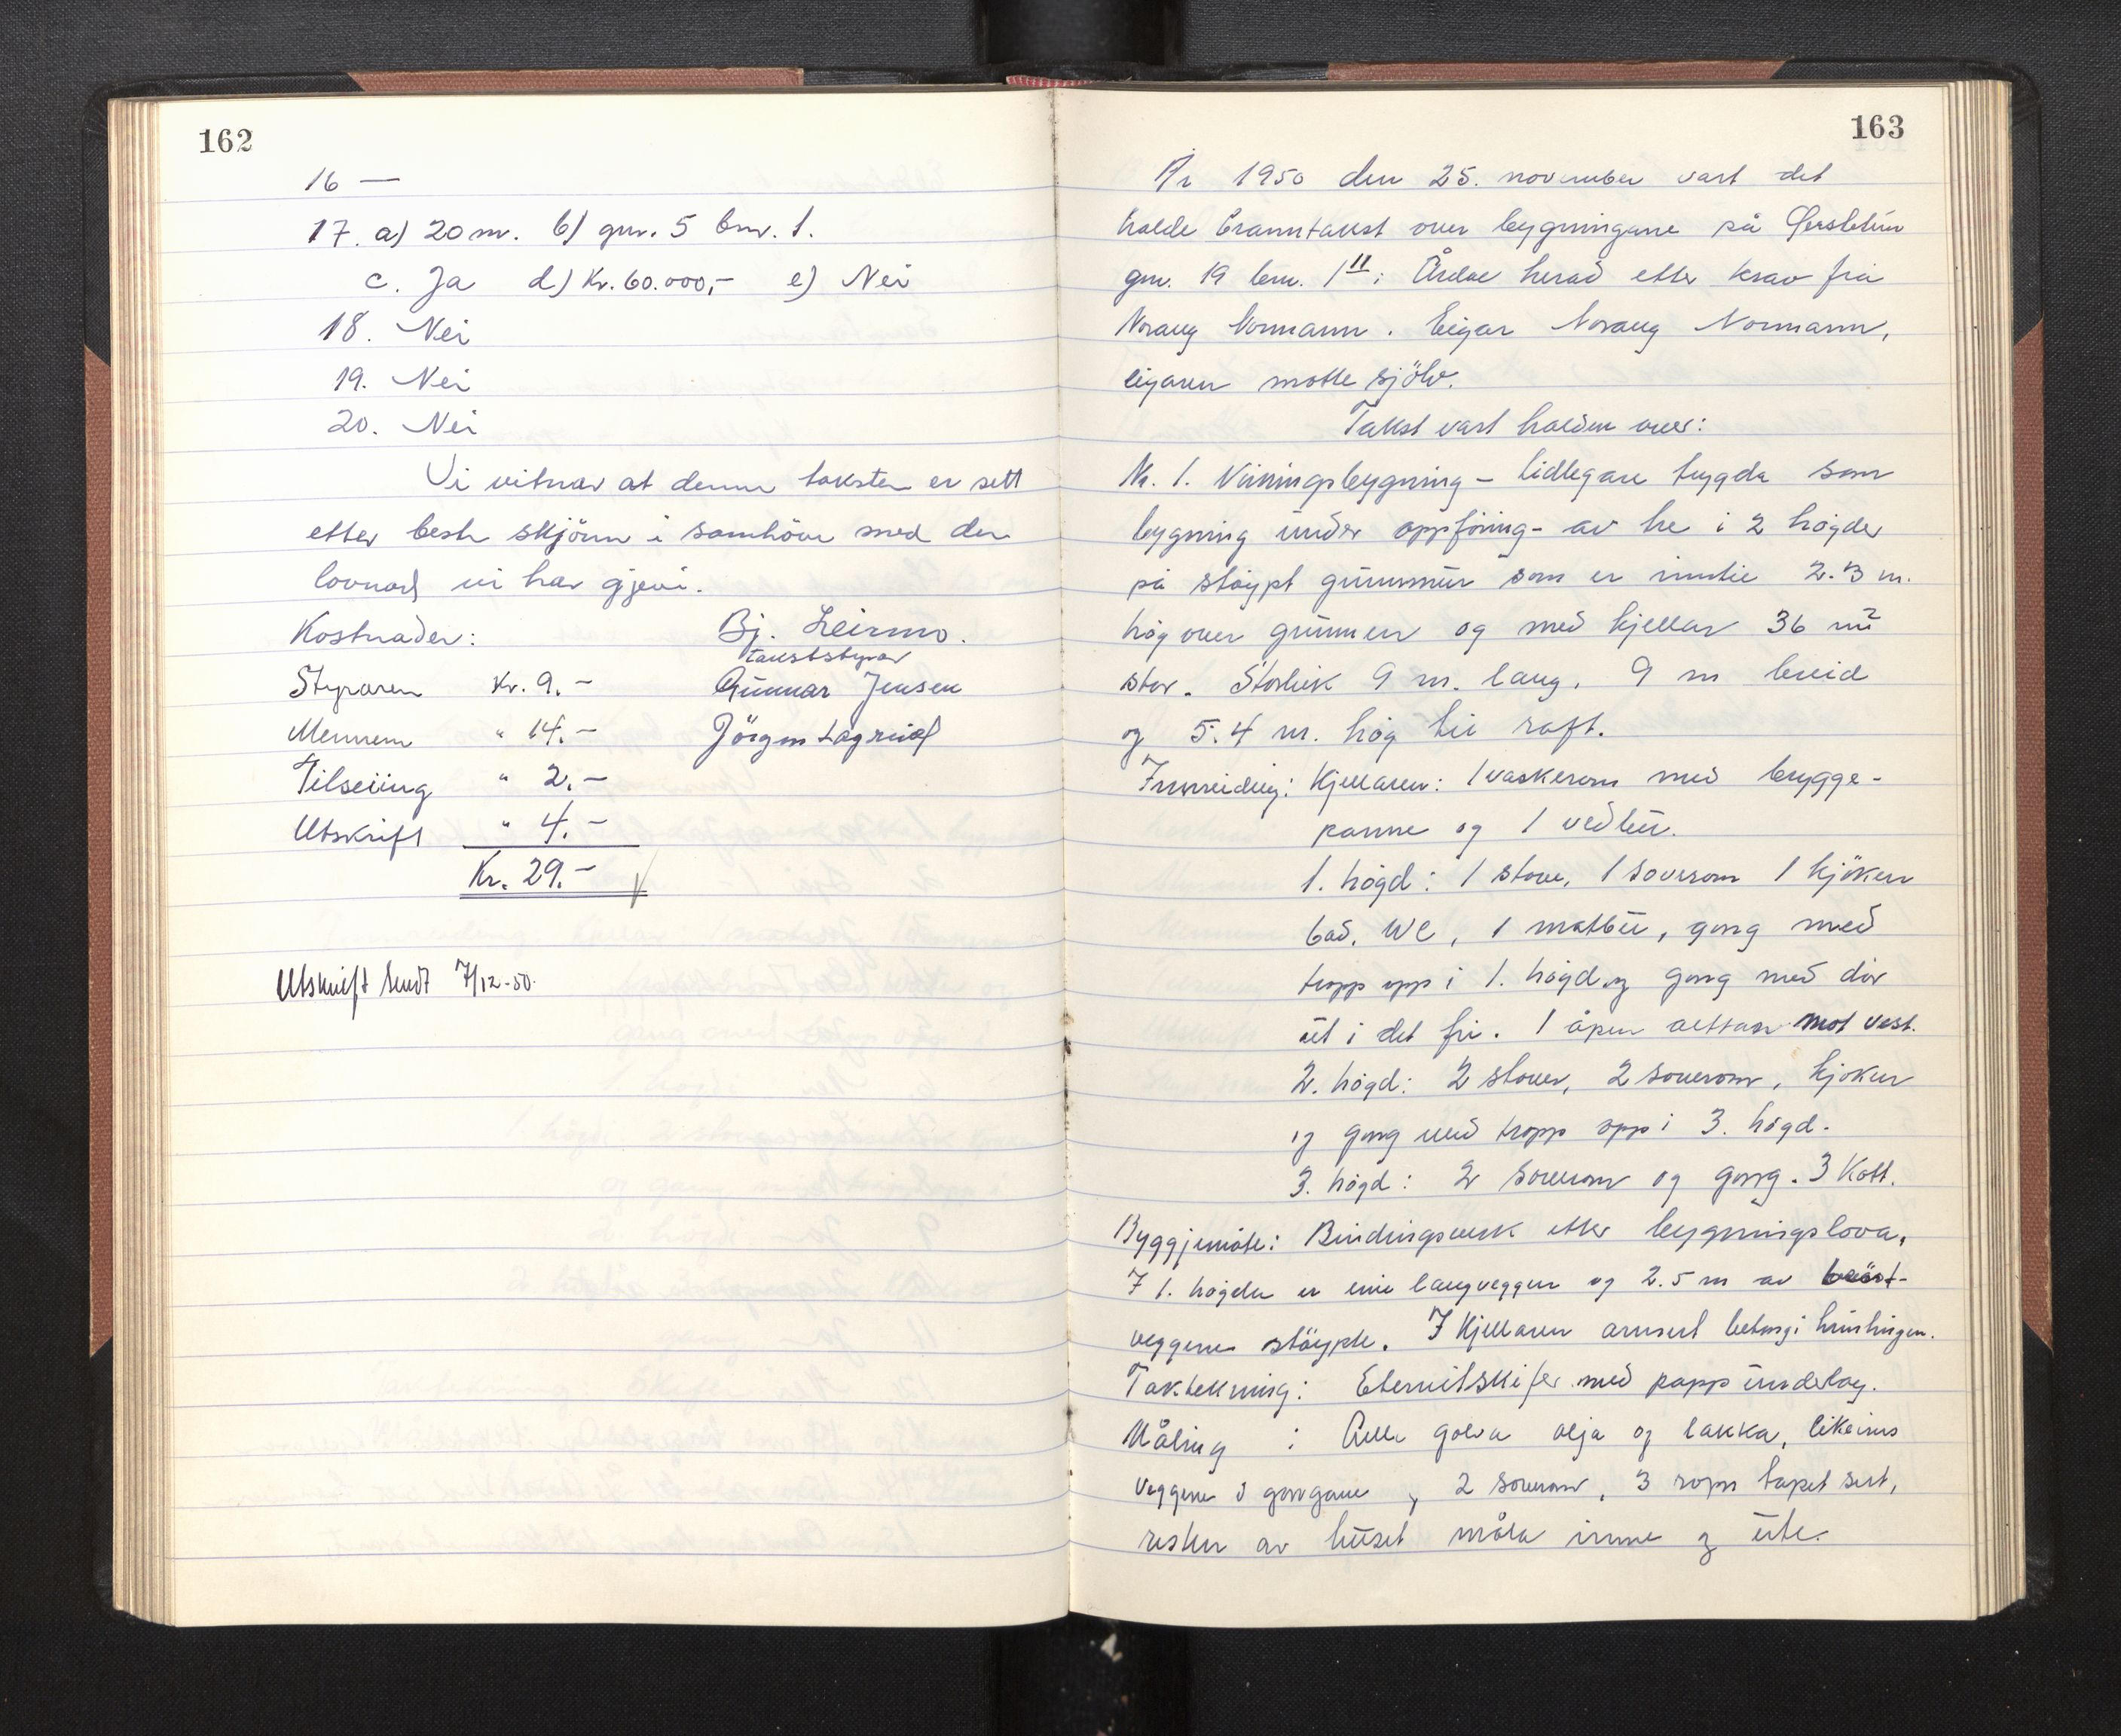 162
16 —
17. a) 20 m. b) gnr. 5 bnr. 1.
c. Ja d) Kr. 60.000,- e) Nei
18. Nei
19. Nei
20. Nei
Vi vitnar at denne taksten er sett
etter beste skjönn i samhöve med den
lovnad vi har gjevi.
Kostnader: Bj. Leirmo.
takststyrar
Styraren Kr. 9.- Gunnar Jensen
Mennene " 14.- Jörgen Lægreid
Tilseiing " 2.-
Utskrift " 4.-
Kr. 29.-
Utskrift sendt 7/12-50.
163
År 1950 den 25. november vart det
halde branntakst over bygningane på
gnr. 19 bnr. 1 11 i Årdal herad etter krav frå
Noraug Normann. Eigar Noraug Normann,
eigaren møtte sjölv.
Takst vart halden over:
Nr. 1. Våningsbygning - tidlegare trygda som
bygning under oppföring - av tre i 2 högder
på stöypt grunnmur som er inntil 2.3 m.
høg over grunnen og med kjellar 36 m2
stor. Storleik 9 m. lang, 9 m breid
og 5.4 m. høg til raft.
Innreiding: Kjellaren: 1 vaskerom med brygge-
panne og 1 vedbu.
1. högd: 1 stove, 1 soverom 1 kjöken
bad, WC, 1 matbu, gong med
tropp opp i 1. högd og gong med dör
ut i det fri. 1 åpen alttan mot vest.
2. högd: 2 stover, 2 soverom, kjöken
og gong med tropp opp i 3. högd.
3. högd: 2 soverom og gong. 3 Kott.
Byggjemåte: Bindingsverk etter bygningslova,
I 1. högda er eine langveggen og 2.5 m av bröst-
veggene stöypte. I kjellaren armert betong i himlingen.
Taktekning: Eternitskifer med papp underlag.
Måling : Alle golva olja og lakka, likeins
veggene i gongane og 2 soverom, 3 rom tapetsert,
resten av huset måla inne og ute.